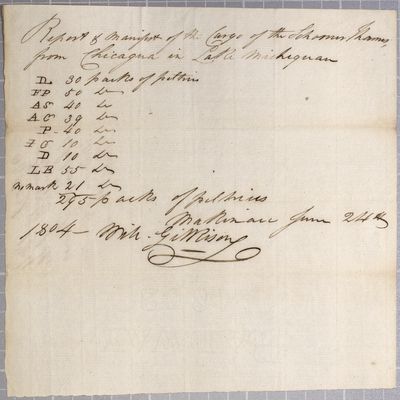 Report & Manifest of the Cargo of the Schooner Thames,
from Chicagua in Lake Michiguan
D. 30 packs of peltries
FP 50 Do
AS 40 Do
AG 39 Do
P - 40 Do
IG 10 Do
D 10 Do
LB 55 Do
No mark 21 Do
295 packs of peltries
Makinac June 24th
1804 - Wm. Gilkison